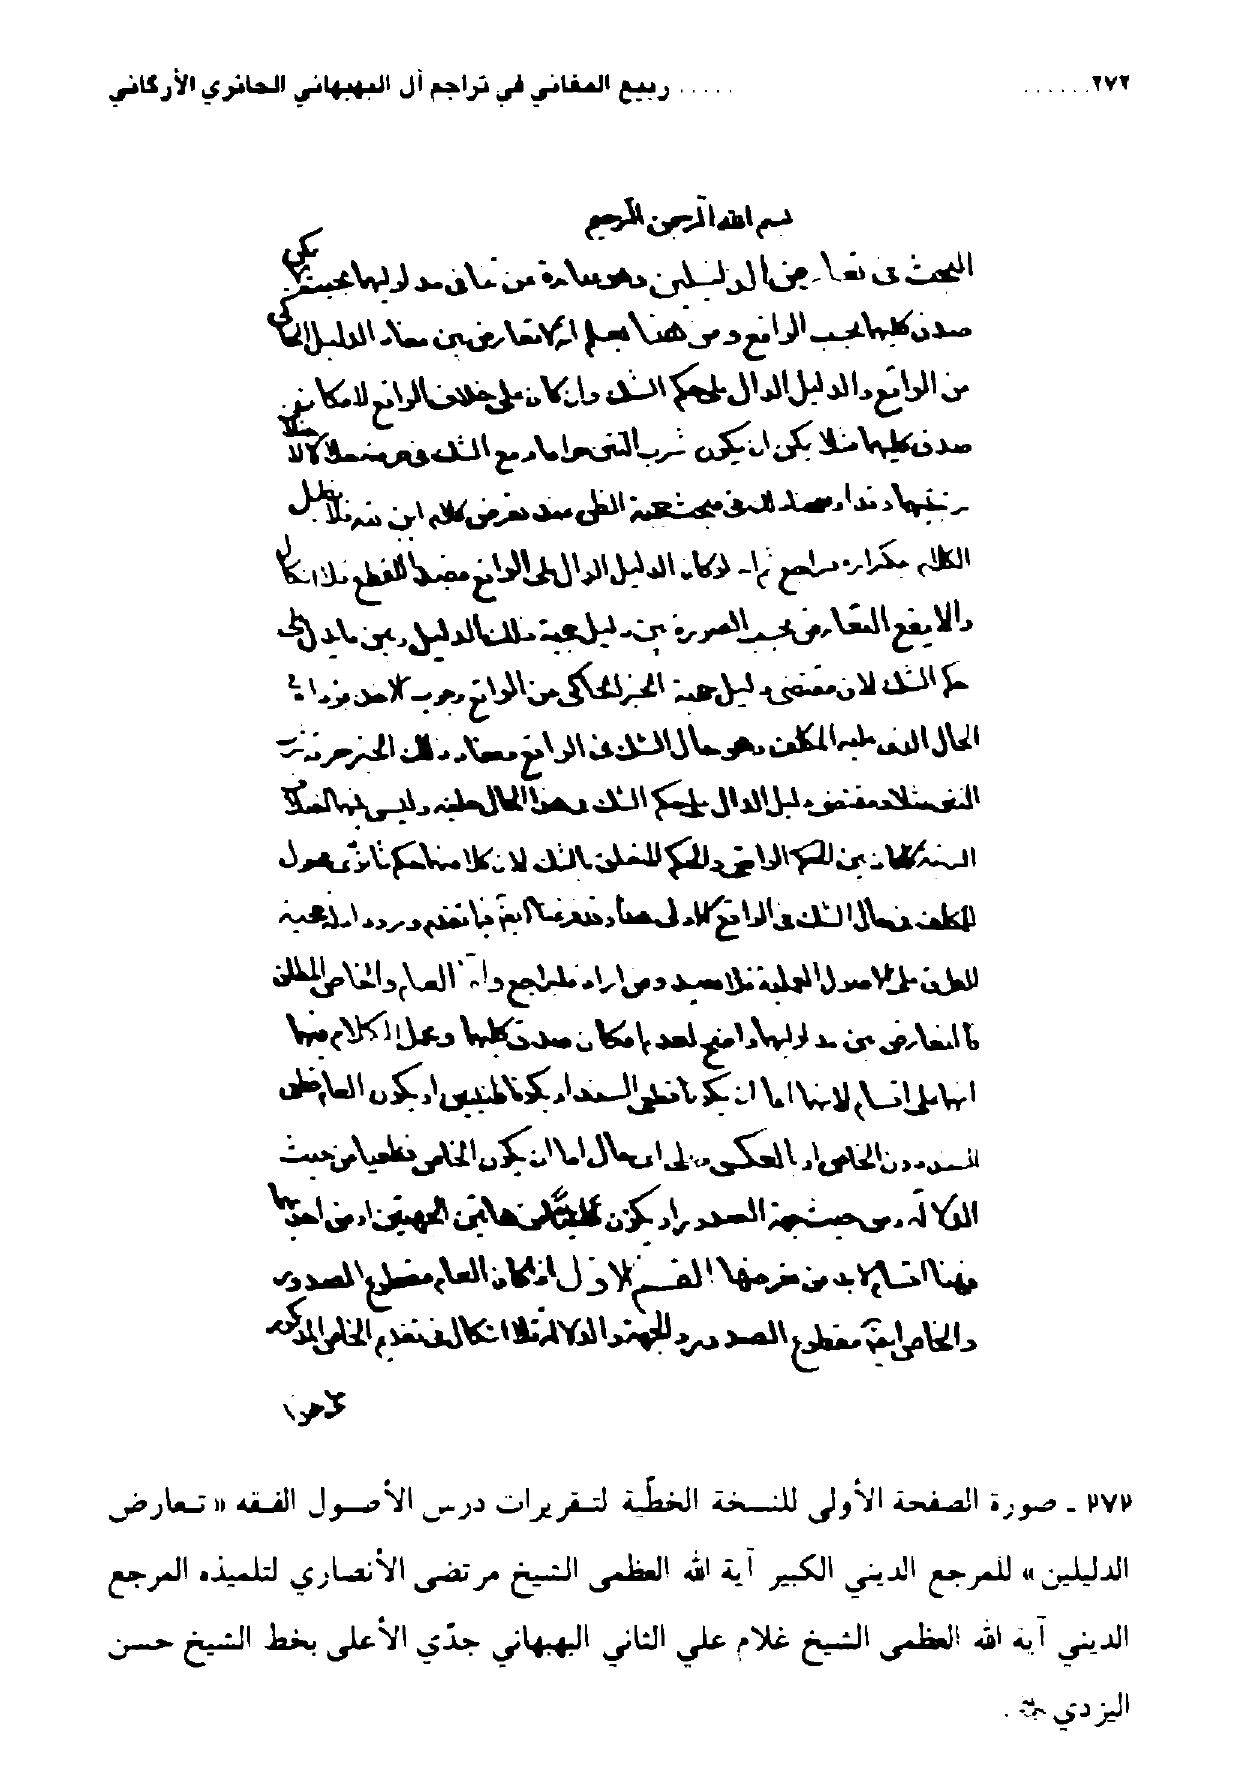 ٢٧٢ ...... ..... ربيع المغاني في تراجم آل البهبهاني الحائري الأركاني
بسم الله الرحمن الرحيم
البحث في تعارض الدليلين وهو عبارة عن تنافي مدلوليهما بحيث يمكن
صدق كليهما بحسب الواقع ومن هنا يعلم انه لا تعارض بين مفاد الدليل الحاكي
من الواقع والدليل الدال على حكم الشك وان كان على خلاف الواقع لامكان
صدق كليهما مثلا يمكن ان يكون شرب التتن حراما ومع الشك في حرمته حلالا
في مبحث حجية الظن عند تعرض كلام ابن قبه فلا نطيل
الكلام بتكراره فراجع نعم لو كان الدليل الدال على الواقع مفيدا للقطع فلا اشكال
والا يقع التعارض بحسب الصورة بين دليل حجية ذلك الدليل وبين ما يدل على
حكم الشك لان مقتضى دليل حجية الخبر الحاكي من الواقع وجوب الاخذ
الحال الذي عليه المكلف وهو حال الشك في الواقع ومفاد ذلك الخبر حرمة شرب
التتن مثلا ومقتضى دليل الدال على حكم الشك في هذا الحال حليته وليس
بين الحكم الواقعي والحكم المتعلق بالشك لان كلا منهما حكم ثانوي
المكلف في حال الشك في الواقع فيما تقدم ورود ادلة حجية
الطرق على الاصول العملية فلا نعيد ومن اراد فليراجع العام والخاص المطلق
فالتعارض بين مدلوليهما واضح لعدم امكان صدق كليهما ومحل الكلام فيهما
انهما على اقسام لانهما اما ان يكونا قطعي السند او يكونا ظنيين او يكون العام قطعي
السند دون الخاص او بالعكس وعلى اي حال اما ان يكون الخاص قطعيا من حيث
الدلالة ومن حيث جهة الصدور او يكون ظنيا من هاتين الجهتين او من احدهما
فهنا اقسام لا بد من تعرضها القسم الاول اذا كان العام مقطوع الصدور
والخاص ايضا مقطوع الصدور والجهة والدلالة فلا اشكال في تقديم الخاص المذكور
٢٧٢ ـ صورة الصفحة الأولى للنسخة الخطّية لتقريرات درس الأصول الفقه « تعارض
الدليلين » للمرجع الديني الكبير آية الله العظمى الشيخ مرتضى الأنصاري لتلميذه المرجع
الديني آية الله العظمى الشيخ غلام علي الثاني البهبهاني جدّي الأعلى بخط الشيخ حسن
اليزدي .